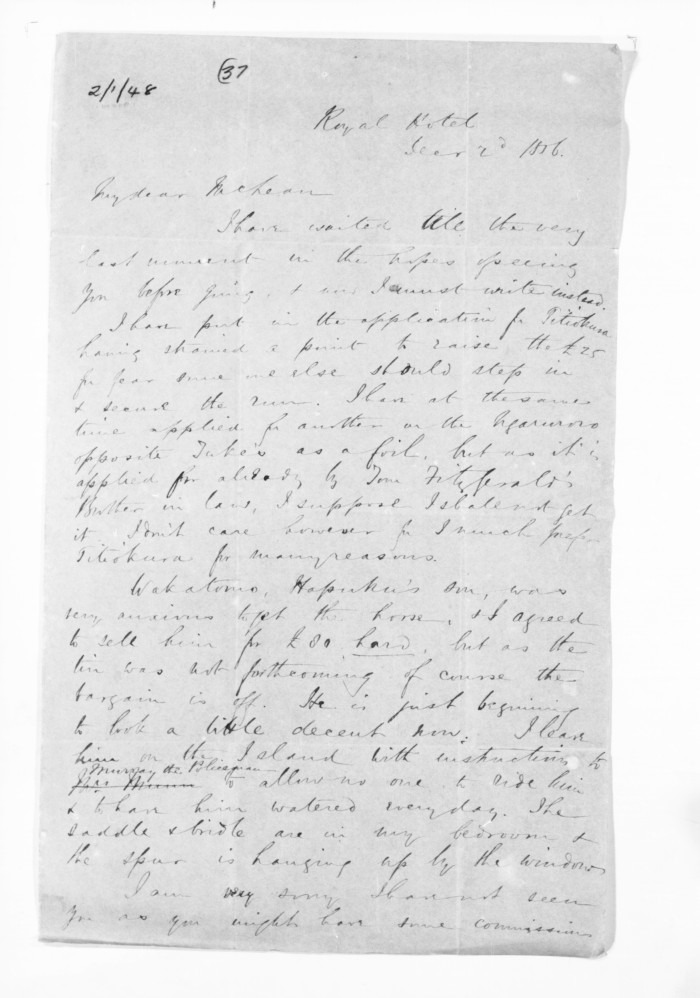 2/1/48
37
Royal Hotel
Decr 2d 1856.
My dear McLean
I have waited till the very
last moment in the hopes of seeing
you before going, & now I must write instead
I have put in the application for Titiokura
having strained a point to raise the £25
for fear some one else should step in
& secure the run. I have at the same
time applied for another on the Ngaruroro
opposite Tuke's as a foil, but as it is
applied for already by Tom Fitzgerald's
Brother in law, I suppose I shall not get
it. I don't care however for I much prefer
Titiokura for many reasons.
Wakatomo, Hapuku's son, was
very anxious to get the horse, & I agreed
to sell him for £80 hard, but as the
tin was not forthcoming of course the
bargain is off. He is just beginning
to look a little decent now. I leave
him on the Island with instructions to
Murray the Policeman
to allow no one to ride him
& to have him watered every day. The
saddle & bridle are in my bedroom &
the spur is hanging up by the window
I am very sorry I have not seen
you as you might have some commissions